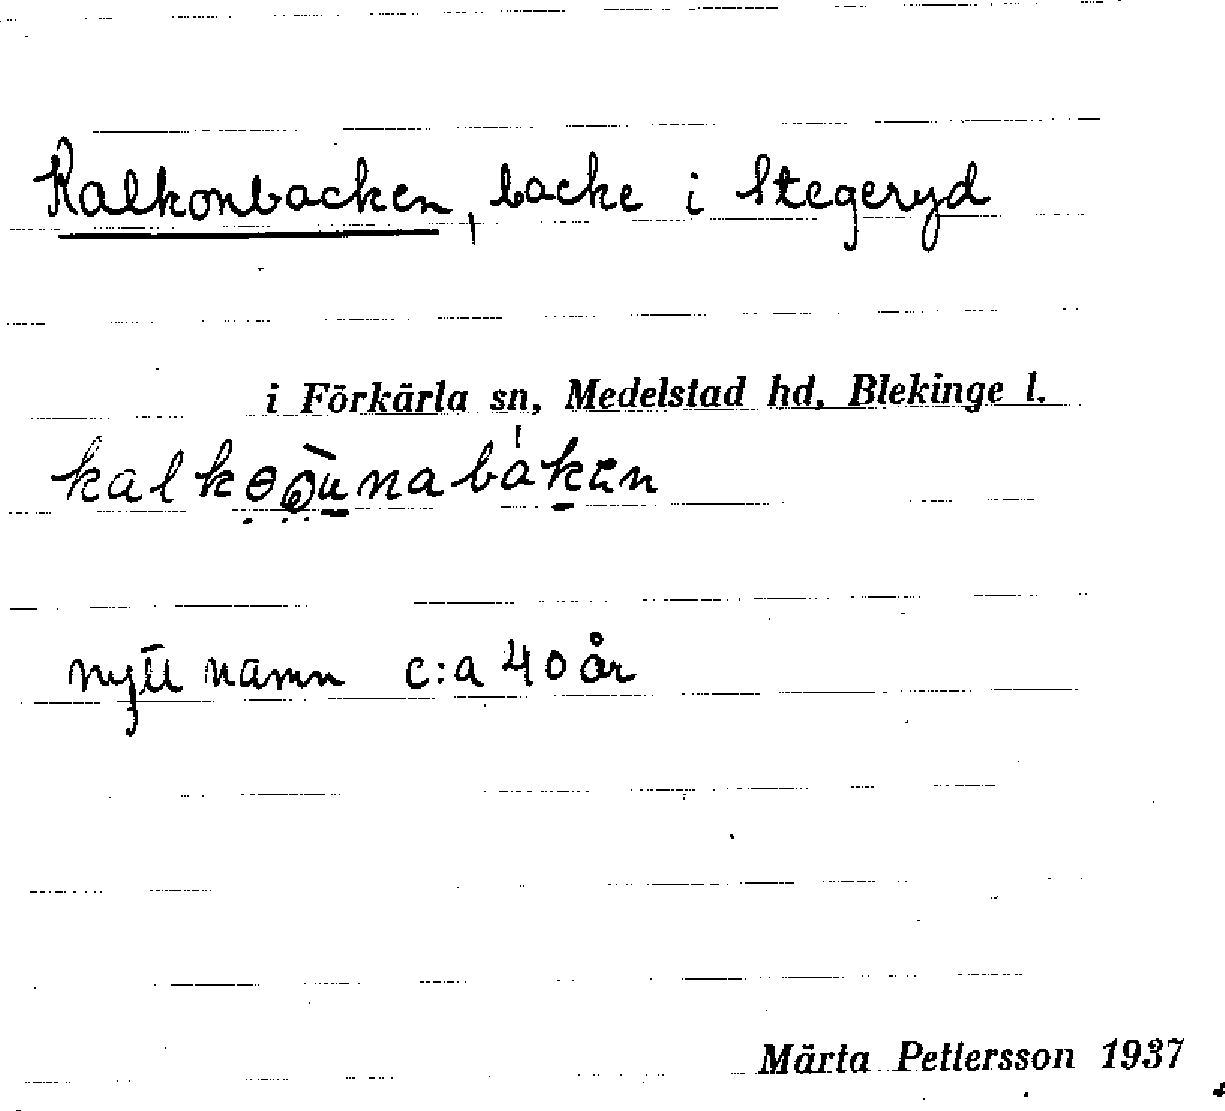 Kalkonbacken, backe i Stegeryd
i Förkärla sn, Medelstad hd, Blekinge l.
nytt namn c:a 40 år
Märta Pettersson 1937